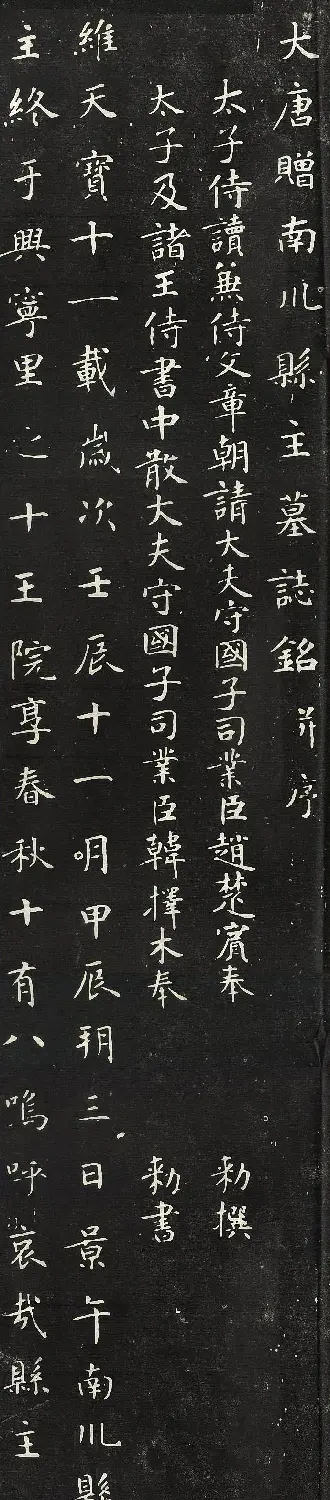 大唐贈南川縣主墓誌銘并序
太子侍讀兼侍文章朝請大夫守國子司業臣趙楚賓奉 勅撰
太子及諸王侍書中散大夫守國子司業臣韓擇木奉 勅書
維天寶十一載歲次壬辰十一朙甲辰朔三日景午南川縣
主終于興寧里之十王院享春秋十有八嗚呼哀哉縣主